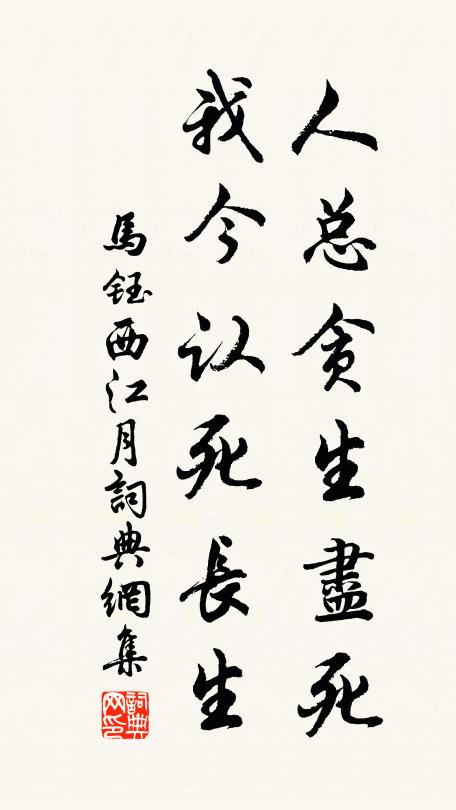 人总贪生盡死
我今认死長生
馬鈺西江月詞典網集
詞典网印